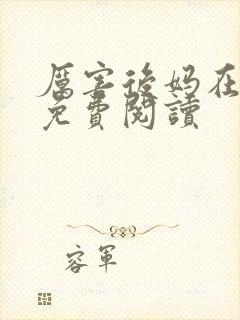 厲害後妈在
免費閱讀
容軍